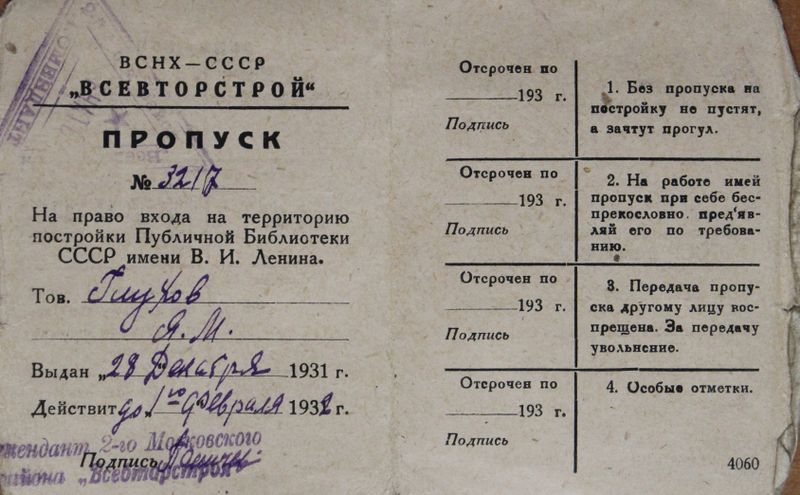 ВСНХ—СССР
„ВСЕВТОРСТРОЙ“
ПРОПУСК
№ 3217
На право входа на территорию
постройки Публичной Библиотеки
СССР имени В. И. Ленина.
Тов. Глухов
Я. М.
Выдан „28 Декабря 1931 г.
Действит до 1го Февраля 1932 г.
комендант 2-го Московского
района „Всевторстрой“
Подпись
Отсрочен по
193 г.
Подпись
Отсрочен по
193 г.
Подпись
Отсрочен по
193 г.
Подпись
Отсрочен по
193 г.
Подпись
1. Без пропуска на
постройку не пустят,
а зачтут прогул.
2. На работе имей
пропуск при себе бес-
прекословно. пред'яв-
ляй его по требова-
нию.
3. Передача пропу-
ска другому лицу вос-
прещена. За передачу
увольнение.
4. Особые отметки.
4060